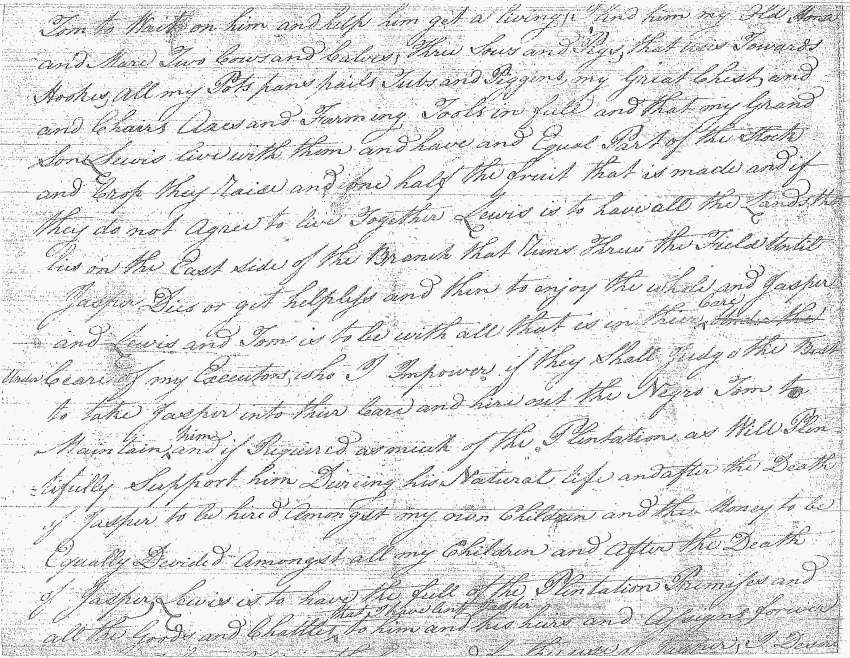 Tom to Wait on him and help him get a living, I lend him my Old Mona
and Mare Two Cows and Calves, three Sows and Pigs, that uses Towards
Hookes, all my Pots pans pails Tubs and Piggins, my Great Chest, and
and Chairs Axes and Farming Tools in full and that my Grand
Sone Lewis live with them and have and Equal Part of the Stock
and Crop they Raice and one half the fruit that is made and if
they do not Agree to live Together Lewis is to have all the Lands, tht
lies on the East side of the Branch that Runs Threw the Field Until
Jasper Dies or get helpless and then to enjoy the whole, and Jasper
and Lewis and Tom is to be with all that is in their Care under the
Under Ceare of my Executors, who I Impower, if they Shall Judge the Best
to take Jasper into their Care and hire out the Negro Tom to
Maintain him and if Required as much of the Plintation as Will Plen-
tifully Support him Dureing his Natural life and after the Death
of Jasper to be hired Amongst my own Children and the Money to be
Equally Devided Amongst all my Children and After the Death
of Jasper, Lewis is to have the full of the Plintation Premises and
all the Goods and Chattles, that I have lent Jasper to him and his heirs and Assigns forever
I Desire